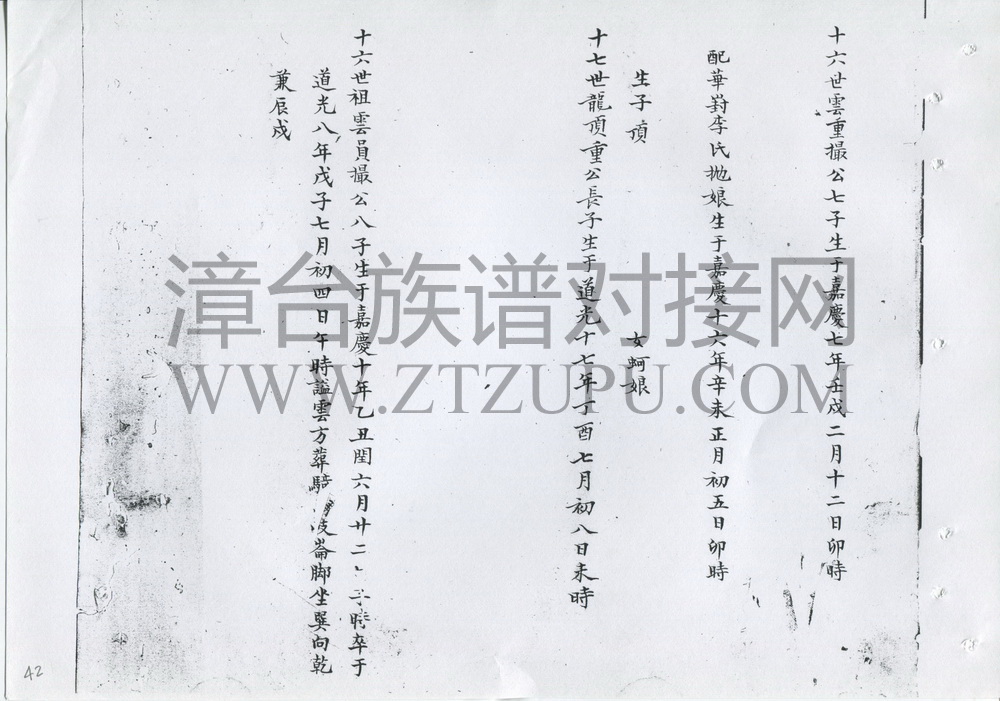 十六世雲重撮公七子生于嘉慶七年壬戍二月十二日卯時
配華封李氏拋娘生于嘉慶十六年辛未正月初五日卯時
生子頂 女蚵娘
十七世龍頂重公長子生于道光十七年丁酉七月初八日未時
十六世祖雲員撮公八子生于嘉慶十年乙丑閏六月廿二 時卒于
道光八年戊子七月初四日午時謚雲方葬 崙脚坐巽向乾
兼辰戍
漳台族谱对接网
WWW.ZTZUPU.COM
42